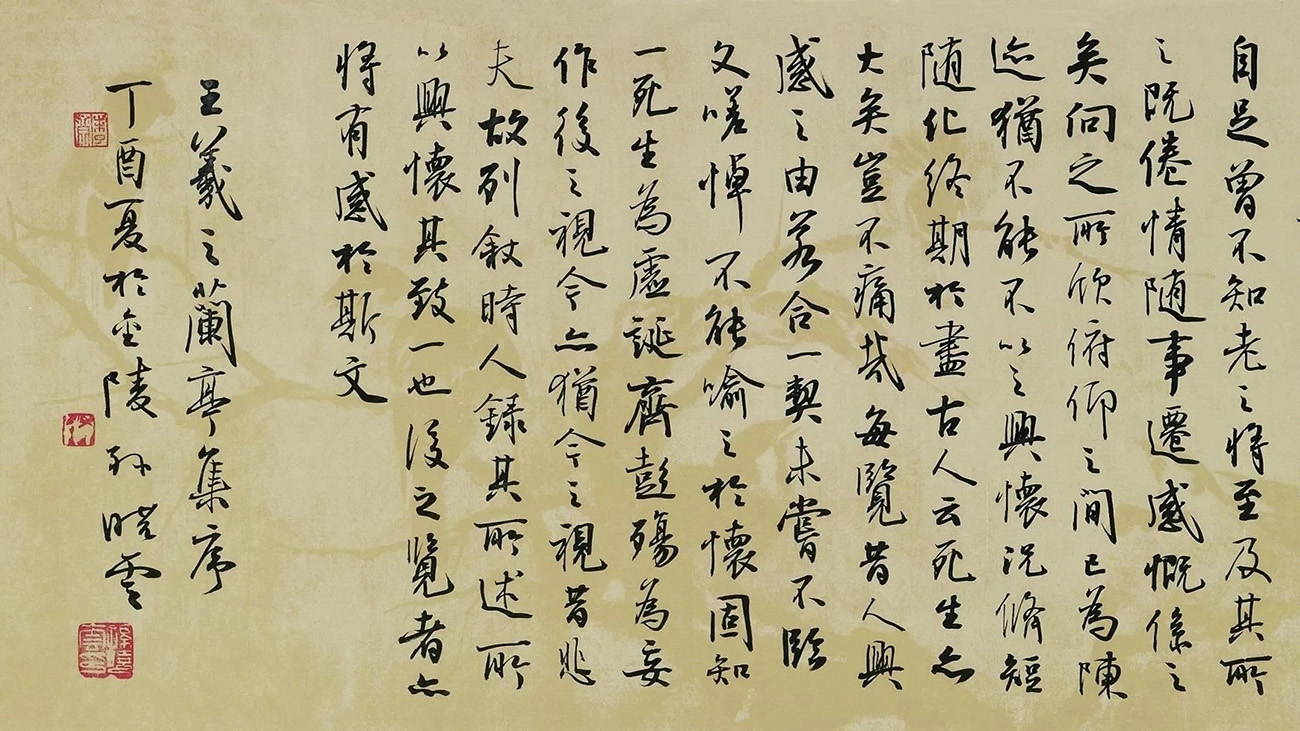 自足曾不知老之將至及其所
之既倦情随事遷感慨係之
矣向之所欣俯仰之間已為陳
迹猶不能不以之興懷況脩短
随化终期於盡古人云死生亦
大矣豈不痛哉每覽昔人興
感之由若合一契未嘗不臨
文嗟悼不能喻之於懷固知
一死生為虛誕齊彭殤為妄
作後之視今亦猶今之視昔悲
夫故列敘時人録其所述所
以興懷其致一也後之覽者亦
將有感於斯文
王羲之蘭亭集序
丁酉夏於金陵孫曉雲